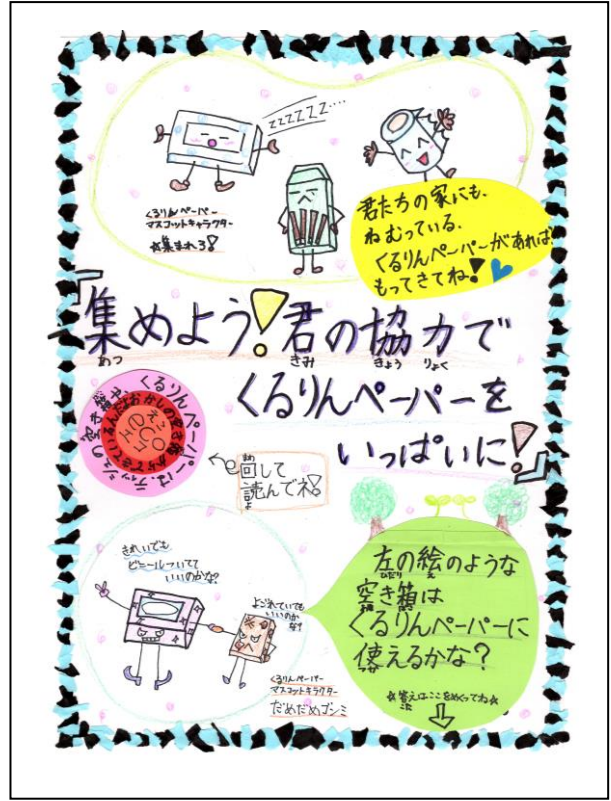 ZZZZZZ....
くるりんペーパー
マスコットキャラクター
☆集まれろ!
君たちの家にも、
ねむっている、
くるりんペーパーがあれば
もってきてね!
『集めよう!君の協力で
あつ きみ きょう りょく
くるりんペーパーを
いっぱいに!』
くるりんペーパーはティッシュの空き箱や、
おかしの空き箱
回して
読んでネ!
きれいでも
ビニールついてて
いいのかな?
よごれていても
いいのか
な?
くるりんペーパー
マスコットキャラクター
だめだめゴシミ
左の絵のような
ひだり え
空き箱は
くるりんペーパーに
使えるかな?
つか
☆答えはここをめくってね☆